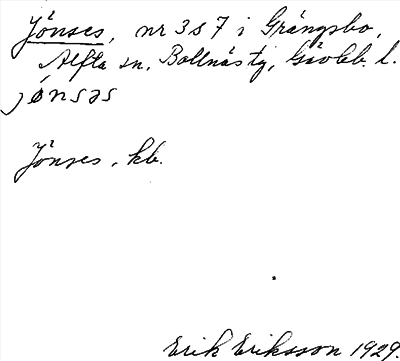 Jönses, nr 3 o 7 i Grängsbo,
Alfta sn, Bollnäs tg, Gävleb. l.
jǿnsəs
Jönses, kb.
Erik Eriksson 1929.